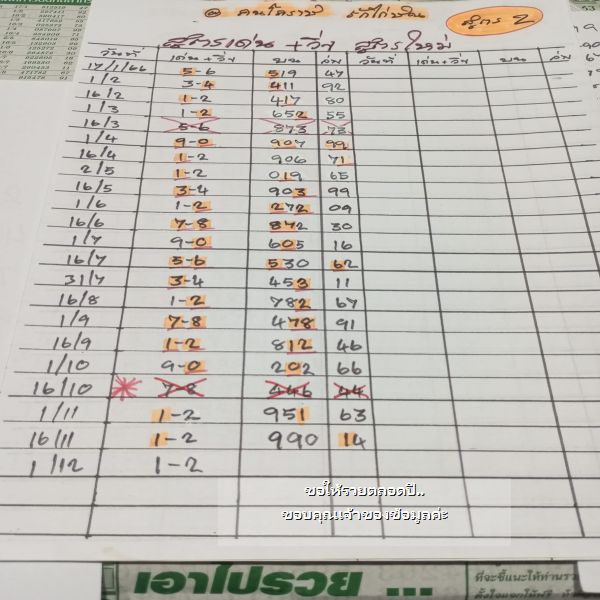 @ คนโคราช รักไก่ชน
สูตร 2
สูตรเด่น + วิ่ง สูตรใหม่
วันที่ เด่น+วิ่ง บน ล่าง วันที่ เด่น+วิ่ง บน ล่าง
17/1/66 5-6 519 47
1/2 3-4 411 92
16/2 1-2 417 80
1/3 1-2 652 55
16/3 5-6 873 73
1/4 9-0 907 99
16/4 1-2 906 71
2/5 1-2 019 65
16/5 3-4 903 99
1/6 1-2 272 09
16/6 7-8 872 30
1/7 9-0 605 16
16/7 5-6 530 62
31/7 3-4 453 11
16/8 1-2 782 67
1/9 7-8 478 91
16/9 1-2 812 46
1/10 9-0 202 66
16/10 7-8 446 44
1/11 1-2 951 63
16/11 1-2 990 14
1/12 1-2
ขอให้รวยตลอดปี..
ขอบคุณเจ้าของข้อมูลค่ะ
เอาไปรวย ...
ที่จะชี้แนะให้ท่านรว